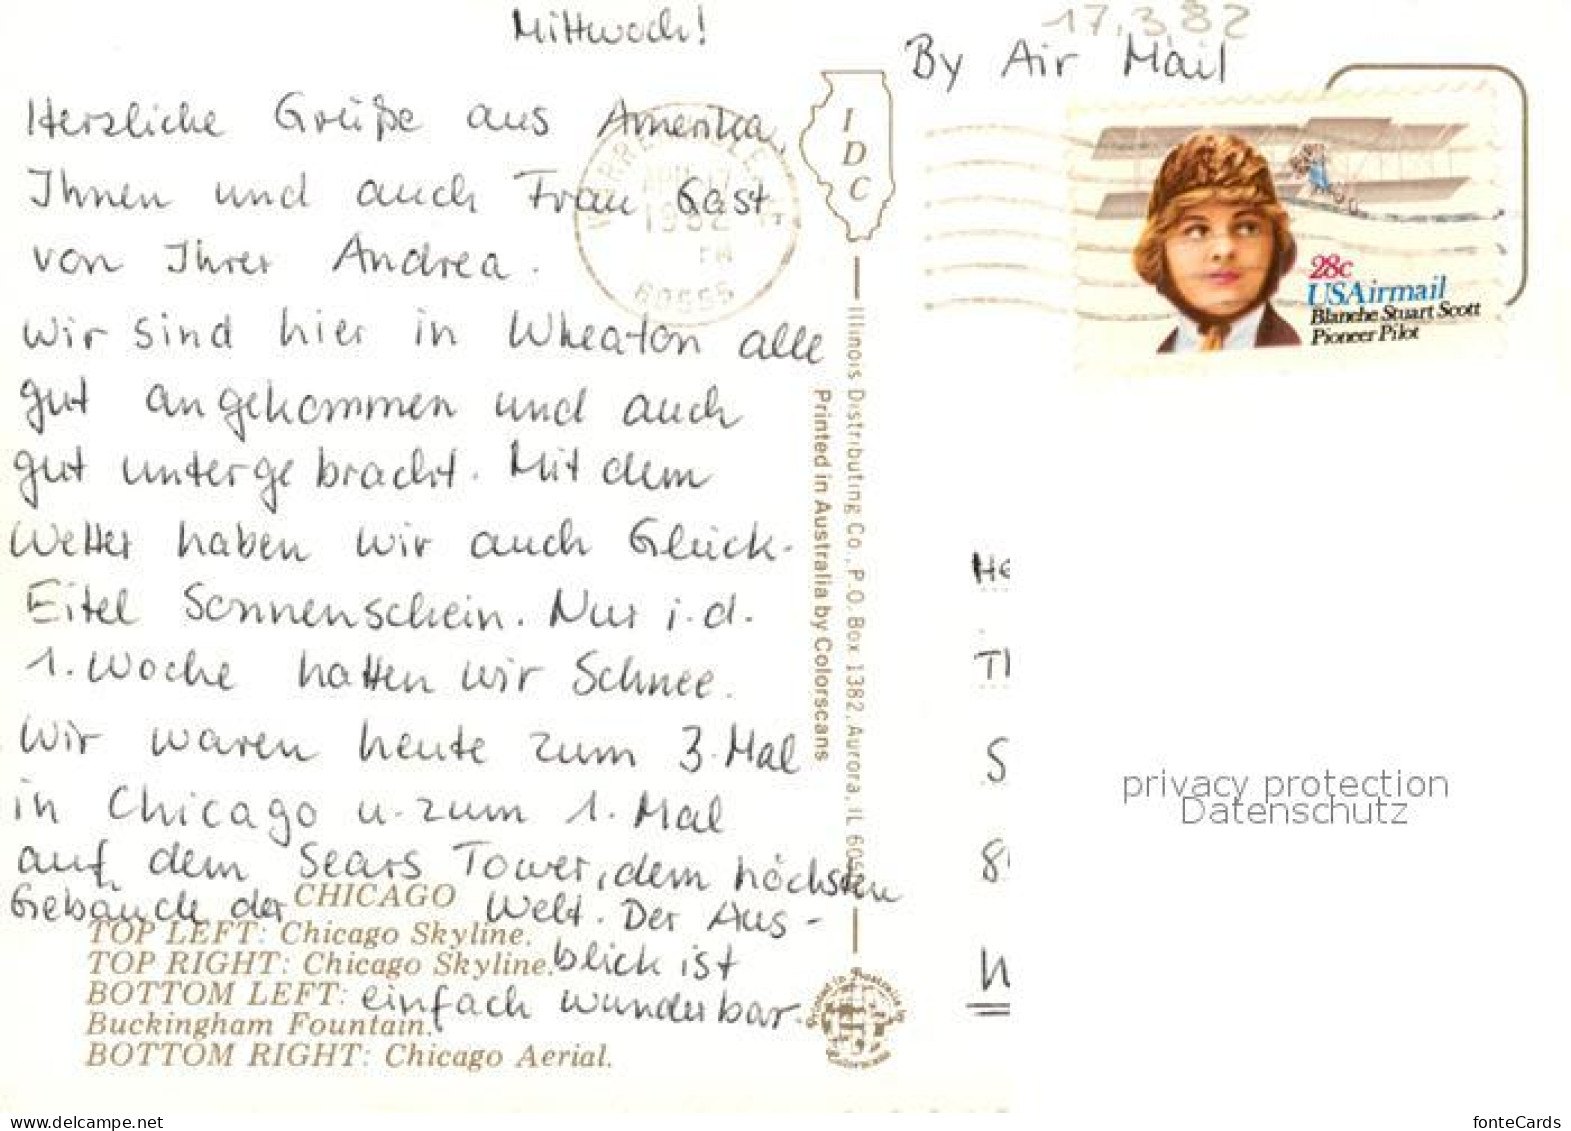 Mittwoch!
17.3.82
By Air Mail
Herzliche Grüße aus Amerika,
Ihnen und auch Frau Gast
von Ihrer Andrea.
Wir sind hier in Wheaton alle
gut angekommen und auch
gut untergebracht. Mit dem
Wetter haben wir auch Glück-
Eitel Sonnenschein. Nur i.d.
1. Woche hatten wir Schnee.
Wir waren heute zum 3. Mal
in Chicago u. zum 1. Mal
auf dem Sears Tower, dem höchsten
Gebäude der Welt. Der Aus-
blick ist
einfach wunderbar.
CHICAGO
TOP LEFT: Chicago Skyline.
TOP RIGHT: Chicago Skyline.
BOTTOM LEFT:
Buckingham Fountain.
BOTTOM RIGHT: Chicago Aerial.
1982
PM
IDC
Illinois Distributing Co., P.O. Box 1382, Aurora, IL
Printed in Australia by Colorscans
28c
USAirmail
Blanche Stuart Scott
Pioneer Pilot
privacy protection
Datenschutz
www.delcampe.net
fonteCards